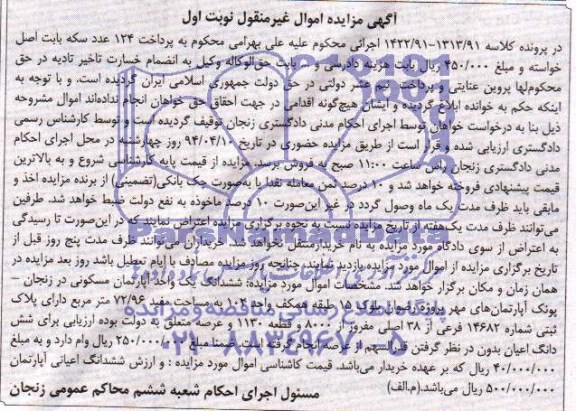 آگهی مزایده اموال غیرمنقول نوبت اول
در پرونده کلاسه ۱۳۱۳/۹۱-۱۴۲۲/۹۱ اجرائی محکوم علیه علی بهرامی محکوم به پرداخت ۱۲۴ عدد سکه بابت اصل
خواسته و مبلغ ۴۵۰/۰۰۰ ریال بابت هزینه دادرسی و بابت حق‌الوکاله وکیل به انضمام خسارت تاخیر تادیه در حق
محکوم‌لها پروین عنایتی و پرداخت نیم عشر دولتی در حق دولت جمهوری اسلامی ایران گردیده است. و با توجه به
اینکه حکم به خوانده ابلاغ گردیده و ایشان هیچ‌گونه اقدامی در جهت احقاق حق خواهان انجام نداده‌اند اموال مشروحه
ذیل بنا به درخواست خواهان توسط اجرای احکام مدنی دادگستری زنجان توقیف گردیده است و توسط کارشناس رسمی
دادگستری ارزیابی شده و قرار است از طریق مزایده حضوری در تاریخ ۹۴/۰۴/۱۰ روز چهارشنبه در محل اجرای احکام
مدنی دادگستری زنجان راس ساعت ۱۱:۰۰ صبح به فروش برسد. مزایده از قیمت پایه کارشناسی شروع و به بالاترین
قیمت پیشنهادی فروخته خواهد شد و ۱۰ درصد ثمن معامله نقدا یا به‌صورت چک بانکی(تضمینی) از برنده مزایده اخذ و
مابقی باید ظرف مدت یک ماه وصول گردد در غیر این‌صورت ۱۰ درصد ماخوذه به نفع دولت ضبط خواهد شد. طرفین
می‌توانند ظرف مدت یک‌هفته از تاریخ مزایده نسبت به نحوه برگزاری مزایده اعتراض نمایند که در این‌صورت تا رسیدگی
به اعتراض از سوی دادگاه مورد مزایده به نام خریدار منتقل نخواهد شد. خریداران می‌توانند ظرف مدت پنج روز قبل از
تاریخ برگزاری مزایده از اموال مورد مزایده بازدید نمایند. چنانچه روز مزایده مصادف با ایام تعطیل باشد روز بعد مزایده در
همان زمان و مکان برگزار خواهد شد. مشخصات اموال مورد مزایده: ششدانگ یک واحد آپارتمان مسکونی در زنجان –
پونک آپارتمان‌های مهر پروژه رضوان بلوک ۱۵ طبقه همکف واحد ۱۰۲ به مساحت مفید ۷۲/۹۶ متر مربع دارای پلاک
ثبتی شماره ۱۴۶۸۲ فرعی از ۳۸ اصلی مفروز از ۸۰۰۰ و قطعه ۱۱۳۰ و عرصه متعلق به دولت بوده ارزیابی برای شش
دانگ اعیان بدون در نظر گرفتن قدرالسهم از عرصه انجام گرفته است ضمنا مبلغ ۲۵۰/۰۰۰/۰۰۰ ریال وام دارد و به مبلغ
۴۰/۰۰۰/۰۰۰ ریال که بر عهده خریدار می‌باشد. قیمت کاشناسی اموال مورد مزایده : و ارزش ششدانگ اعیانی آپارتمان
۵۰۰/۰۰۰/۰۰۰ ریال می‌باشد.(م.الف)
مسئول اجرای احکام شعبه ششم محاکم عمومی زنجان